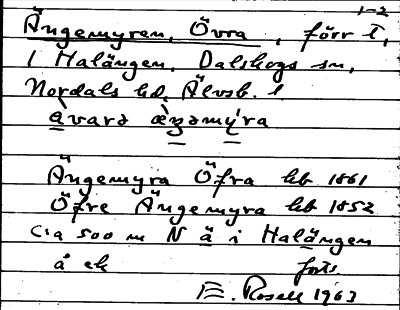 1-2
Ängemyren, Övra, förr T,
i Halängen, Dalskogs sn,
Nordals hd. Älvsb. l
àvarə æŋəmýra
Ängemyra Öfra hb 1861
Öfre Ängemyra hb 1852
Cia 500 m N ä i Halängen
å ek forts.
E. Rosell 1963